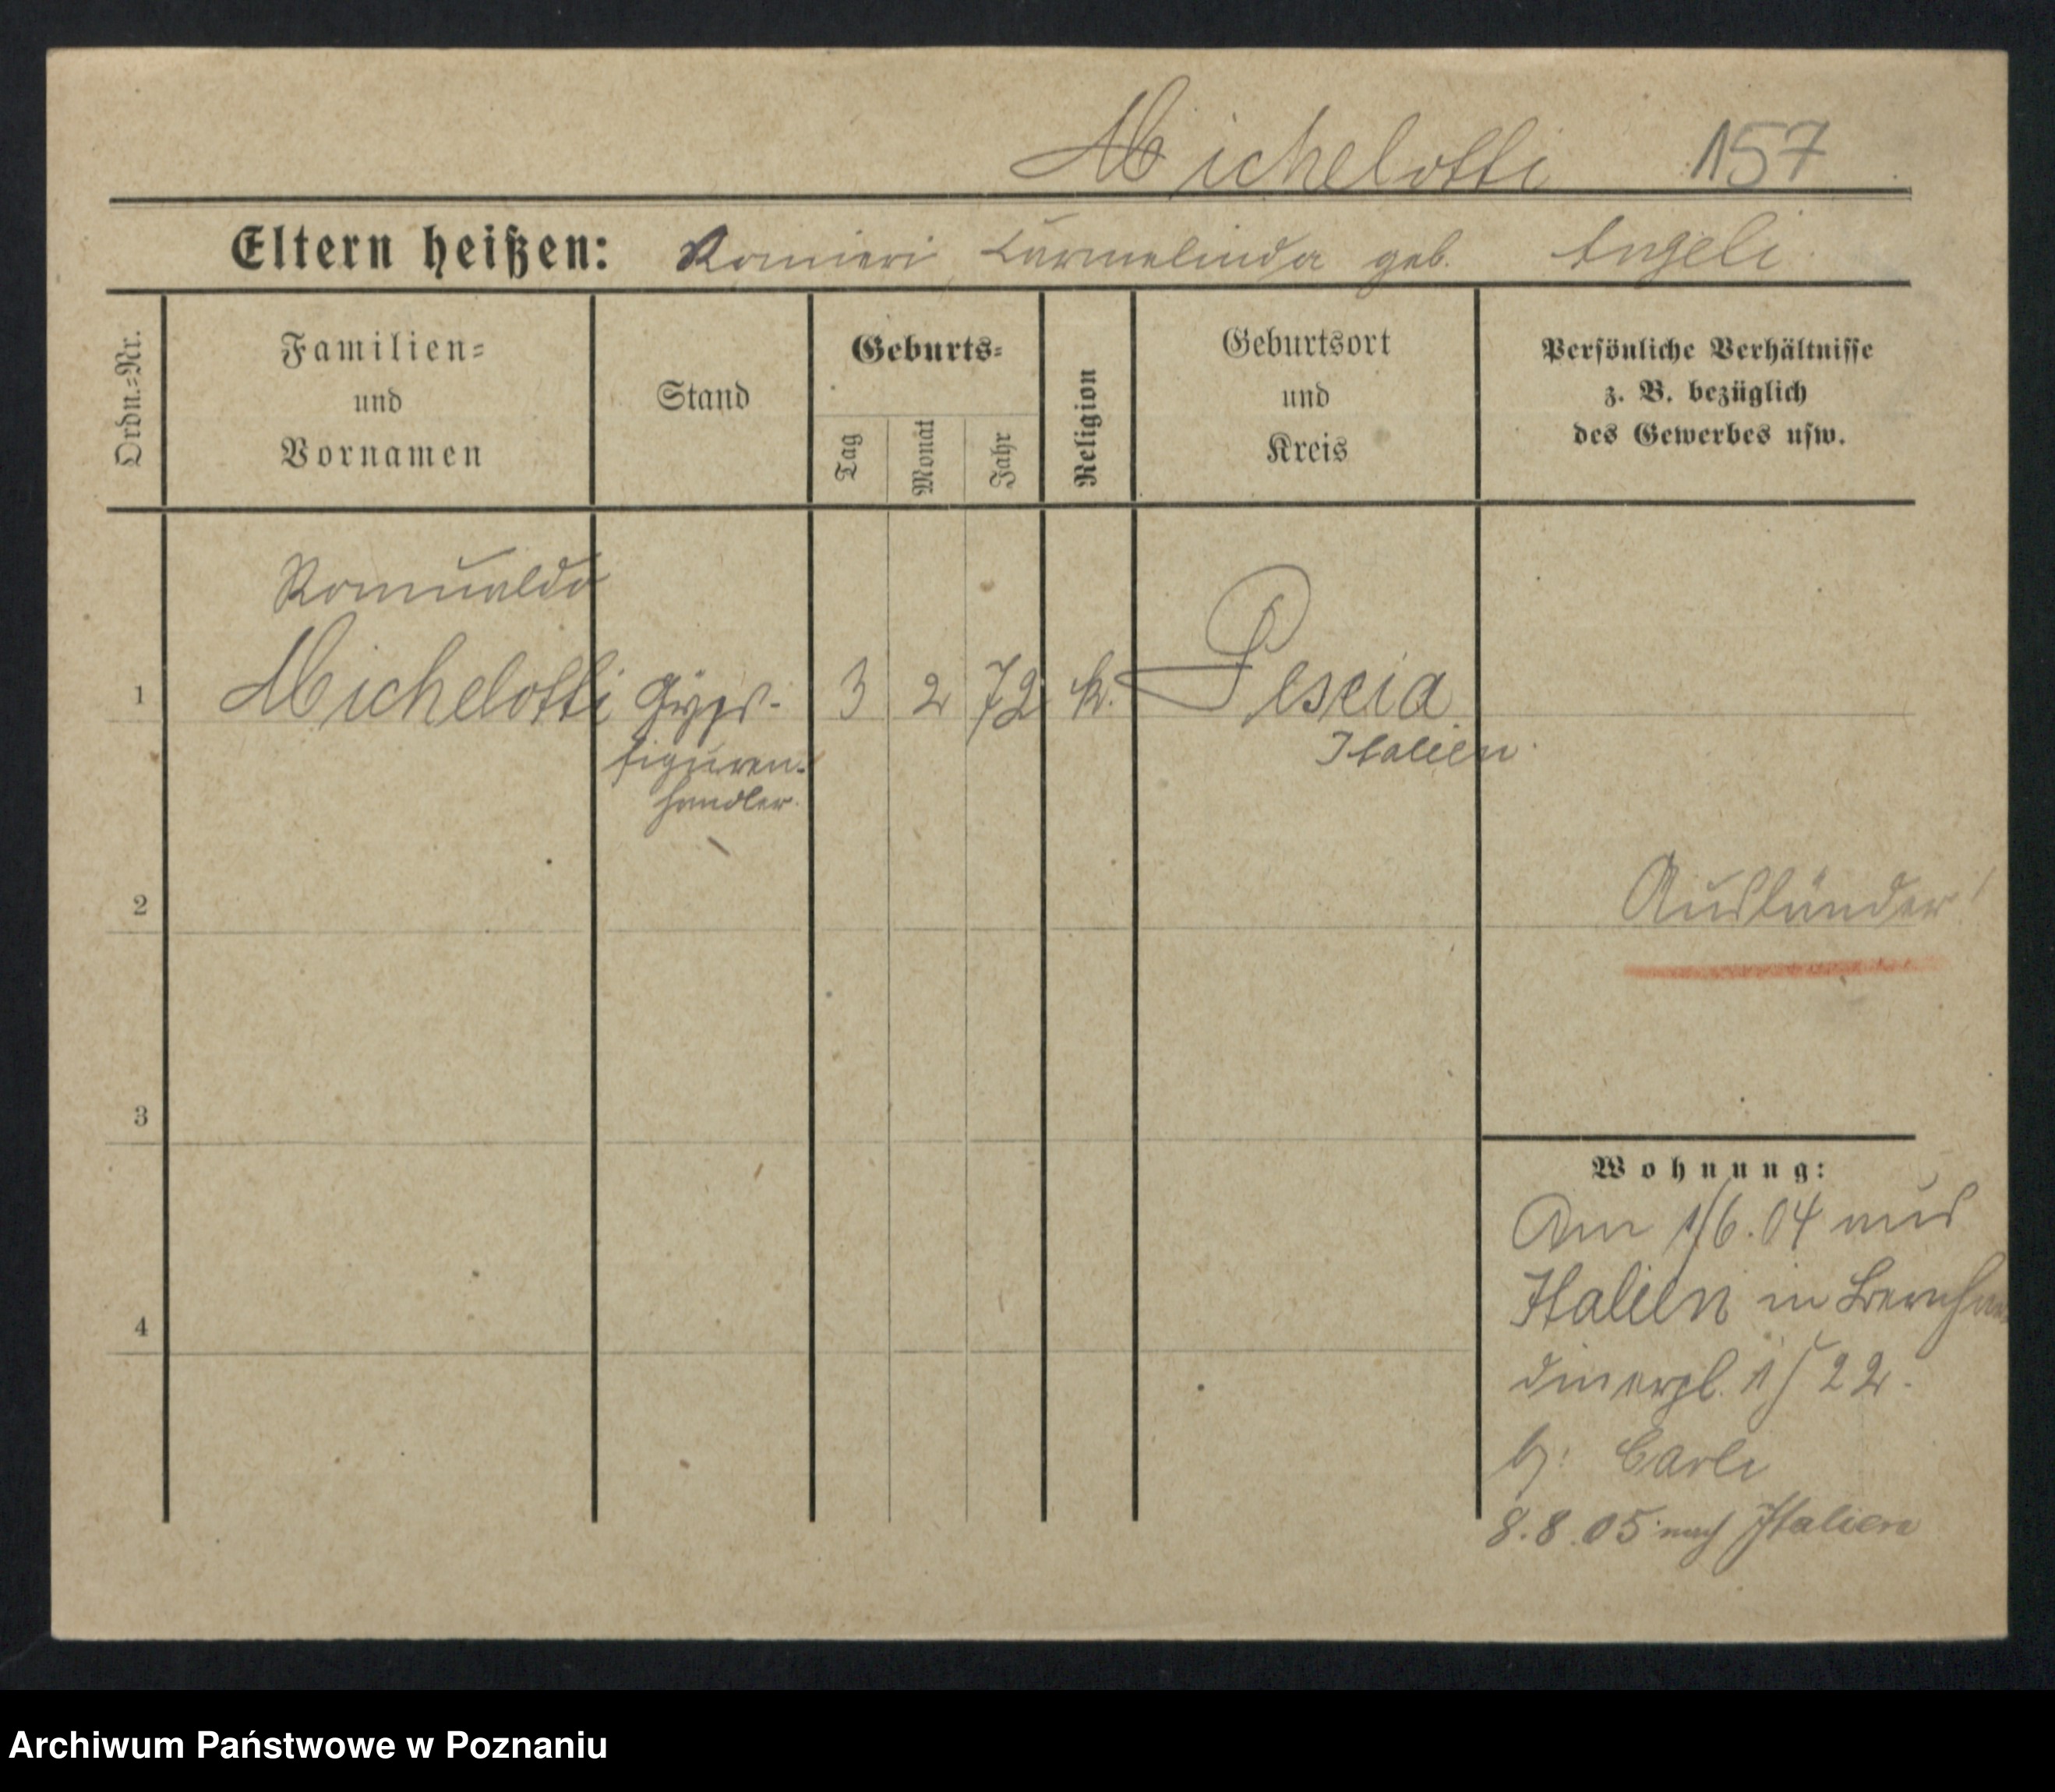 Michelotti 157
Eltern heißen: Ranieri, Carmelinda geb. Angeli.
Ordn.=Nr.
Familien=
und
Vornamen
Stand
Geburts=
Tag
Monat
Jahr
Religion
Geburtsort
und
Kreis
Persönliche Verhältnisse
z. B. bezüglich
des Gewerbes usw.
Romualdo
1 Michelotti Gyps- 3 2 72 k. Pescia
figuren- Italien.
händler.
2 Ausländer!
3
Wohnung:
Am 1/6.04 aus
Italien in
4
1/22.
b/: Carli
8.8.05 nach Italien
Archiwum Państwowe w Poznaniu